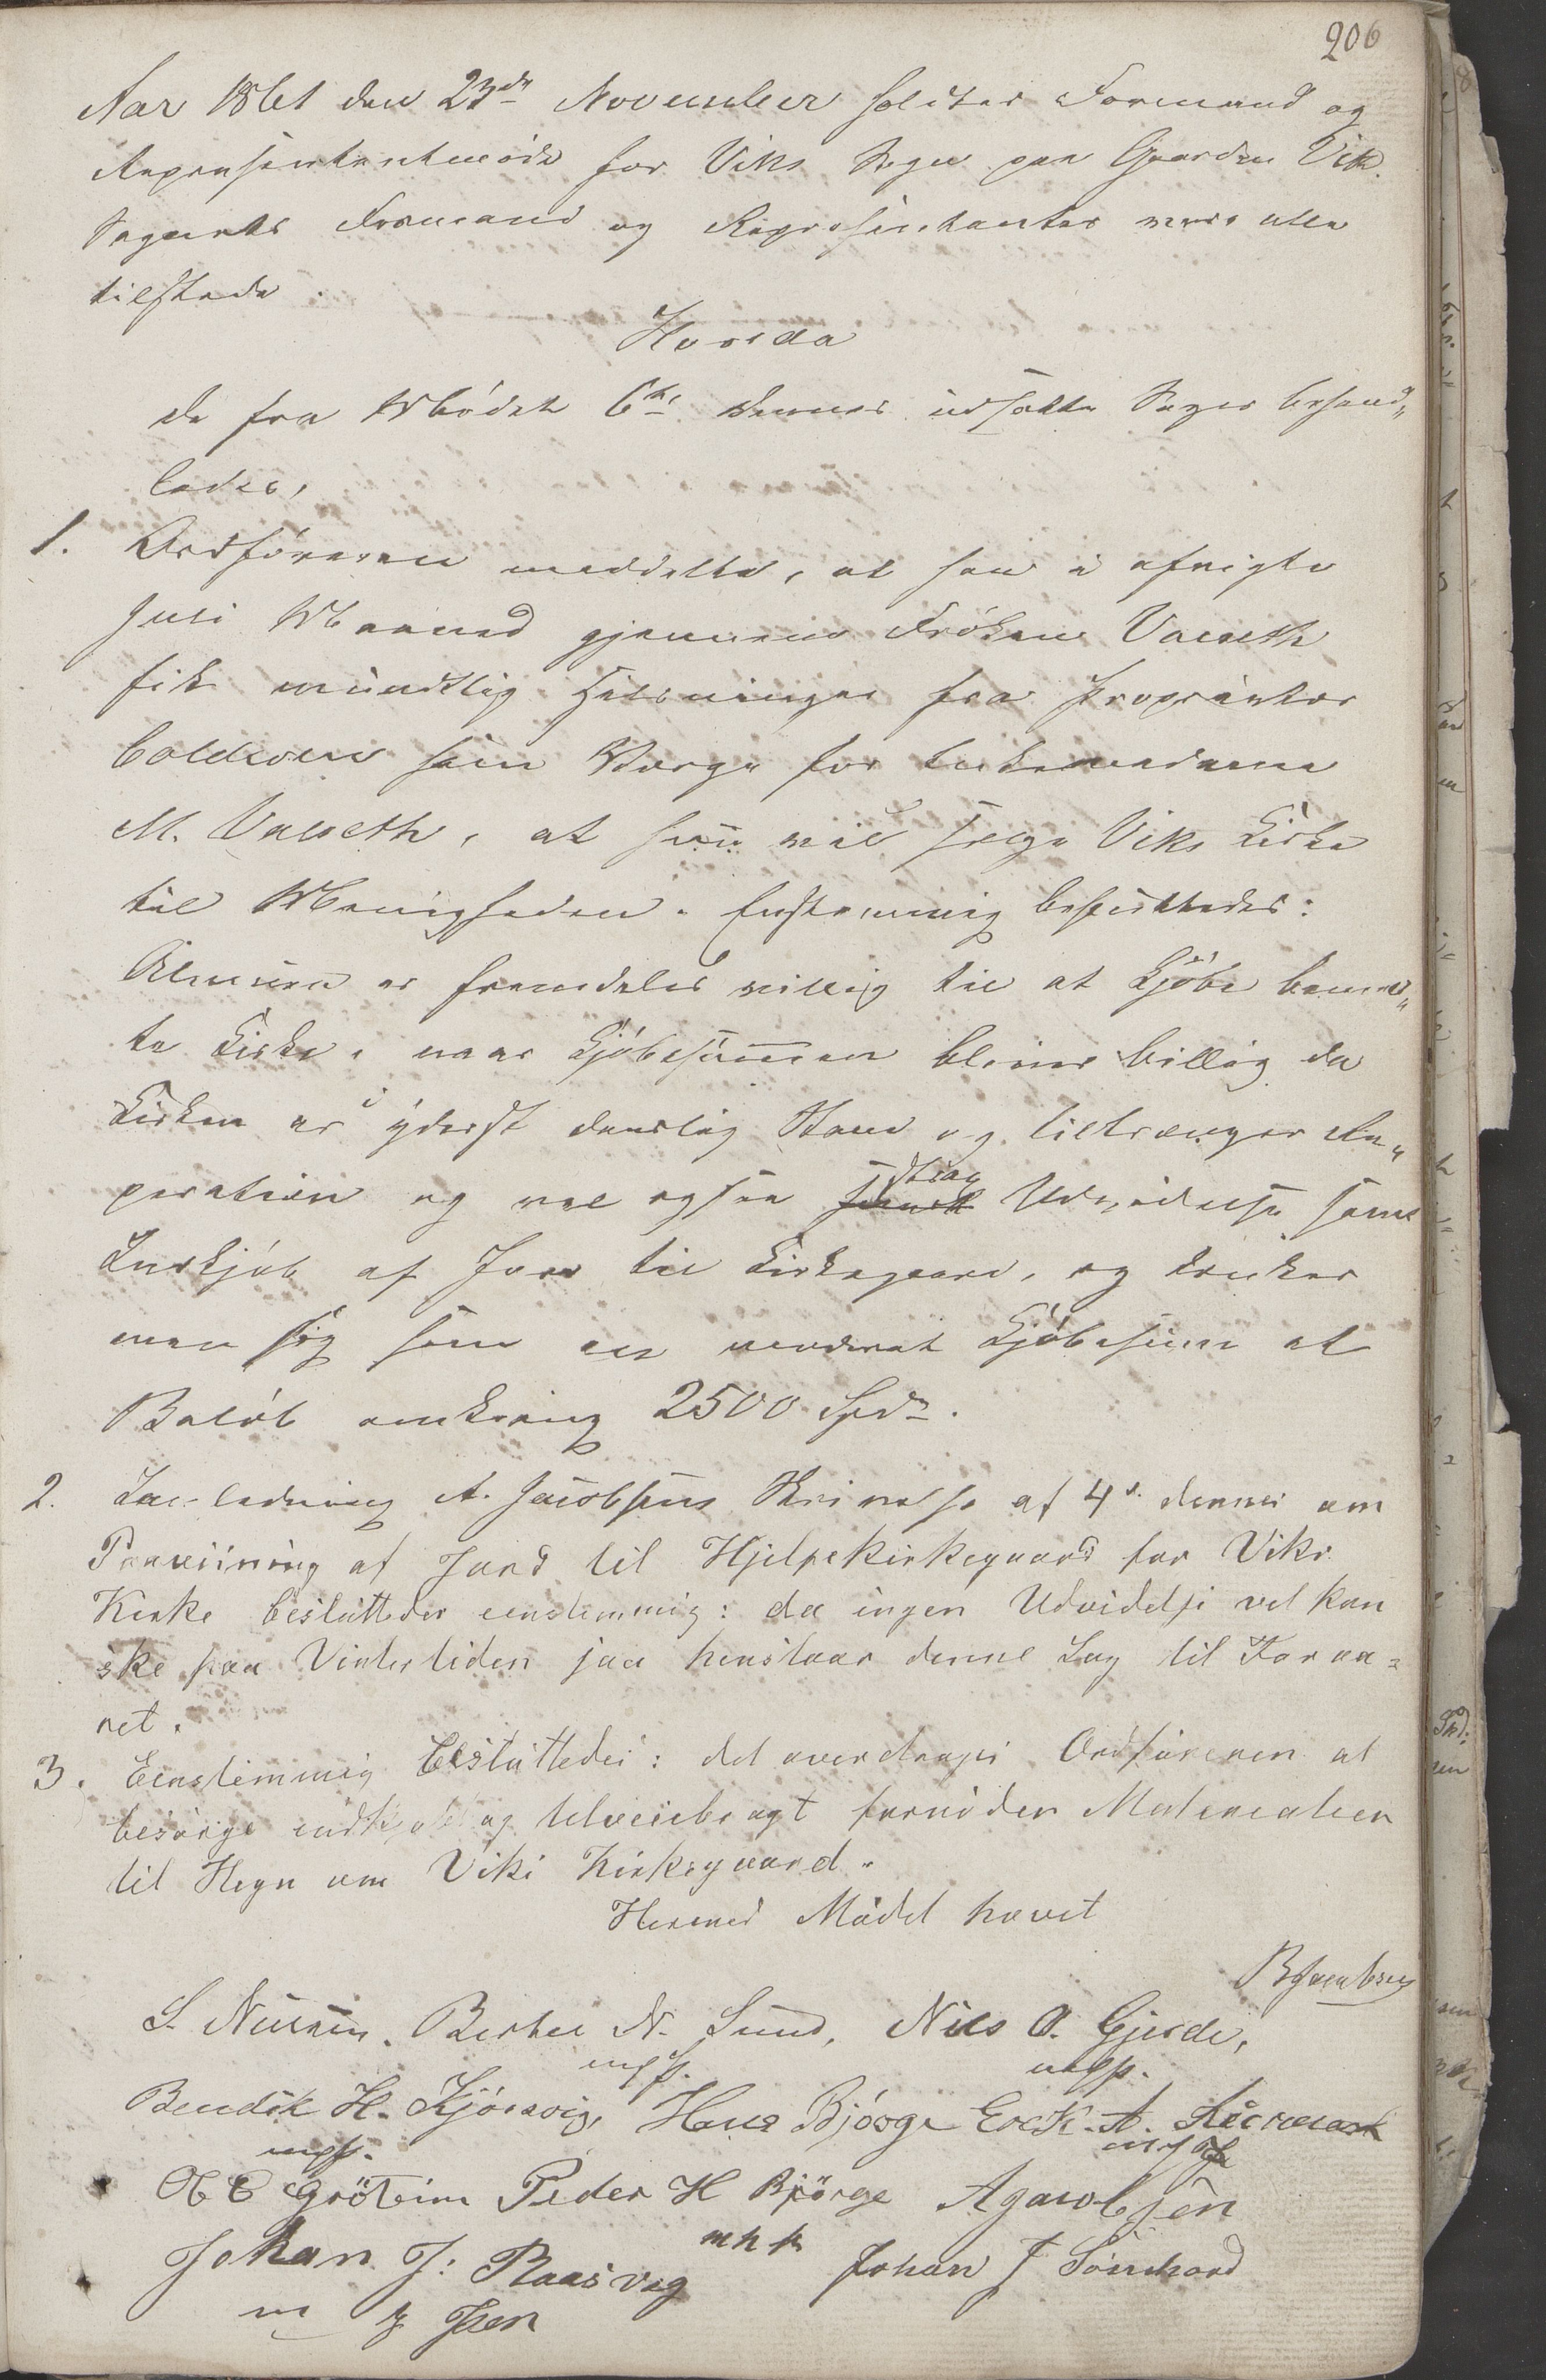 206
Aar 1861 den 23de November holdtes Formand og
Repræsentantmöde for Viks Sogn paa Gaarden Vik.
Sognets Formænd og Repræsentanter vare alle
tilstede.
Hvorda
de fra Mödet 6te dennes udsatte Sager behand„
ledes,
1. Ordföreren meddelte, at han i afvigte
Juli Maaned gjennem Fröken Valseth
fik mundtlig Hilsninger fra Proprietær
som Værge for Enkemadame
M. Valseth, at hun vil sælge Viks Kirke
til Menigheden. Enstemmig besluttedes:
Almuen er fremdeles villig til at kjöbe bemeld„
te Kirke, naar Kjöbesummen bliver billig da
Kirken er i yderst daarlig Stand og tiltrænger Re„
peration og vel ogsaa strax Udvidelse samt
Indkjöb af Jord til Kirkegaard, og tænker
man sig som en moderat Kjöbesum et
Belöb omkring 2500 Spd.
2. I Anledning A. Jacobsens Skrivelse af 4de dennes om
Paaviisning af Jord til Hjelpekirkegaard for Viks
Kirke besluttedes eenstemmig: da ingen Udvidelse vel kan
ske paa Vintertiden saa henstaar denne Sag til Foraa=
ret.
3. Eenstemmig besluttedes: det overdrages Ordföreren at
besörge indkjöbt og tilveiebragt fornöden Materialier
til Hegn om Viks Kirkegaard.
Hermed Mödet hævet
B Jacobsen
S. Nielsen. Berthel N. Sund, Nils O. Gjerde,
mpp. mpp.
Bendik H. Kjörsvig, Hans Björge Erik A.
mpp.
O E Gröteim Peder H Björge A Jacobsen
Johan J: Raasvog m h p Johan J
m f Pen